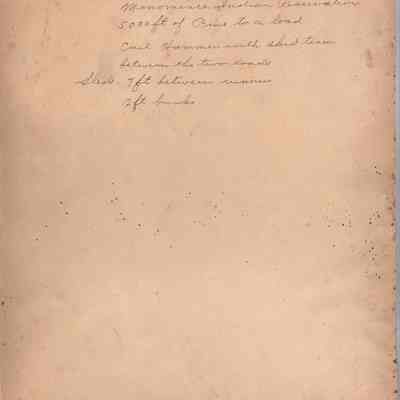 Menominee Indian Reservation
5000 ft of Pine to a load
Carl Hammer with sled team
between the two loads
Sleds. 7 ft between runners
12 ft bunks